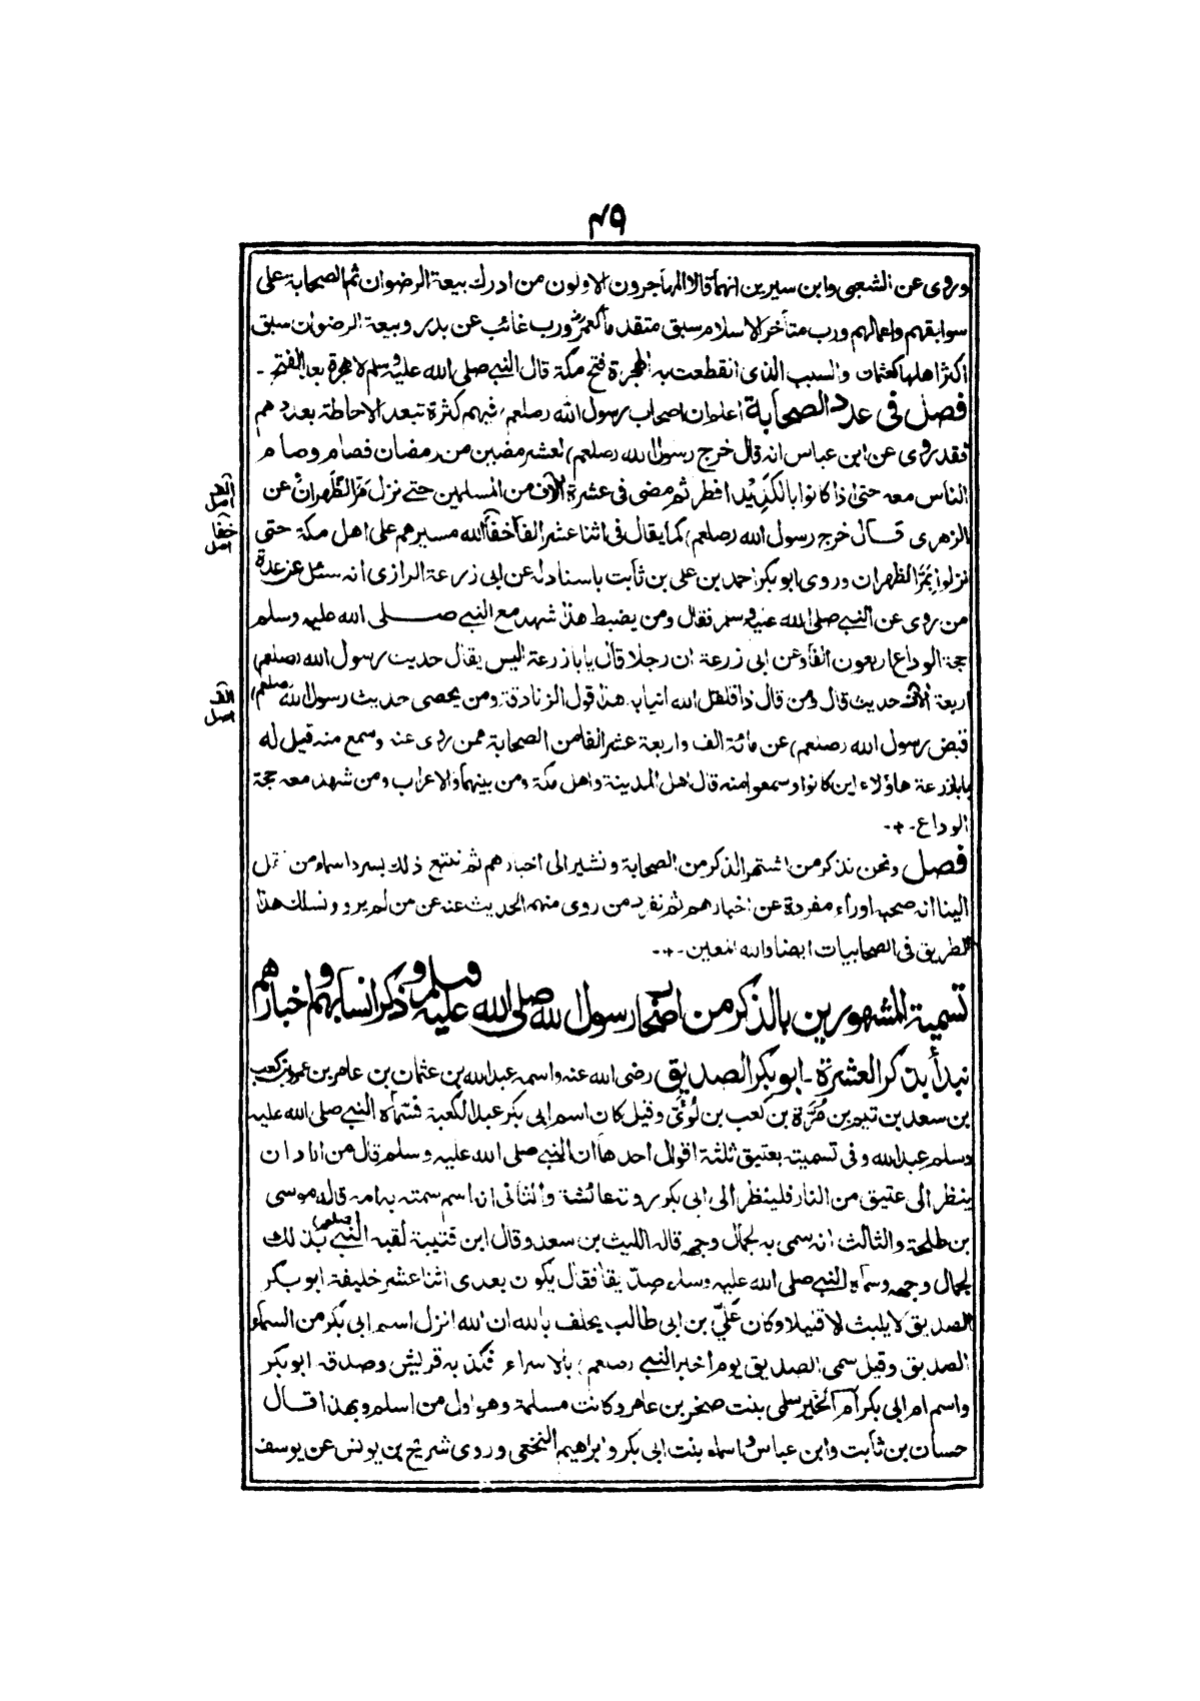 ٤٩
وروى عن الشعبى وابن سيرين انهما قالا المهاجرون الاولون من ادرك بيعة الرضوان ثم الصحابة على
سوابقهم واعمالهم ورب متأخر الاسلام سبق متقدما كعمر ورب غائب عن بدر وبيعة الرضوان سبق
اكثر اهلها كعثمان والسبب الذى انقطعت به الهجرة فتح مكة قال النبي صلى الله عليه وسلم لا هجرة بعد الفتح -
فصل فى عدد الصحابة اعلم ان اصحاب رسول الله (صلعم) فيهم كثرة تبعد الاحاطة بعددهم
فقد روى عن ابن عباس انه قال خرج رسول الله (صلعم) لعشر مضين من رمضان فصام وصام
الناس معه حتى اذا كانوا بالكديد افطر ثم مضى فى عشرة الاف من المسلمين حتے نزل مر الظهران عن
الف
اصل
الزهرى قال خرج رسول الله (صلعم) كما يقال فى اثنا عشر الفا خفا الله مسيرهم على اهل مكة حتى
خفا
اصل
نزلوا بمر الظهران وروى ابو بكر احمد بن على بن ثابت باسناد له عن ابى زرعة الرازى انه سئل عن عدة
من روى عن النبي صلى الله عليه وسلم فقال ومن يضبط هذا شهد مع النبي صلى الله عليه وسلم
حجة الوداع اربعون الفا وعن ابى زرعة ان رجلا قال يابا زرعة اليس يقال حديث رسول الله (صلعم)
اربعة الاف حديث قال ومن قال ذا قلقل الله انيابه هذا قول الزنادقة ومن يحصى حديث رسول الله (صلعم)
الف
اصل
قبض رسول الله (صلعم) عن مائة الف واربعة عشر الفا من الصحابة ممن روى عنه وسمع منه قيل له
يابا زرعة هاؤلاء اين كانوا وسمعوا منه قال اهل المدينة واهل مكة ومن بينهما والاعراب ومن شهد معه حجة
الوداع -+-
فصل ونحن نذكر من اشتهر الذكر من الصحابة ونشير الى اخبارهم ثم نتبع ذلك بسرد اسماء من نقل
الينا انه صحبه او رأه مفردة عن اخبارهم ثم نفرد من روى منهم الحديث عنه عن من لم يرو ونسلك هذا
الطريق فى الصحابيات ايضا والله المعين -+-
تسمية المشهورين بالذكر من اصحاب رسول الله صلى الله عليه وسلم وذكر انسابهم واخبارهم
نبدأ بذكر العشرة - ابو بكر الصديق رضى الله عنه واسمه عبد الله بن عثمان بن عامر بن عمرو بن كعب
بن سعد بن تيم بن مرة بن كعب بن لؤى وقيل كان اسم ابى بكر عبد الكعبة فسماه النبي صلى الله عليه
وسلم عبد الله وفى تسميته بعتيق ثلثة اقوال احدها ان النبي صلى الله عليه وسلم قال من اراد ان
ينظر الى عتيق من النار فلينظر الى ابى بكر روته عائشة والثانى ان اسم سمته به امه قاله موسى
بن طلحة والثالث انه سمى به لجمال وجهه قاله الليث بن سعد وقال ابن قتيبة لقبه النبي (صلعم) بذلك
لجمال وجهه وسماه النبي صلى الله عليه وسلم صديقا فقال يكون بعدى اثنا عشر خليفة ابو بكر
الصديق لا يلبث الا قليلا وكان علي بن ابى طالب يحلف بالله ان الله انزل اسم ابى بكر من السماء
الصديق وقيل سمى الصديق يوم اخبر النبي (صلعم) بالاسراء فكذبه قريش وصدقه ابو بكر
واسم ام ابى بكر ام الخير سلمى بنت صخر بن عامر وكانت مسلمة وهو اول من اسلم وبهذا قال
حسان بن ثابت وابن عباس واسماء بنت ابى بكر وابراهيم النخعى وروى شريح بن يونس عن يوسف